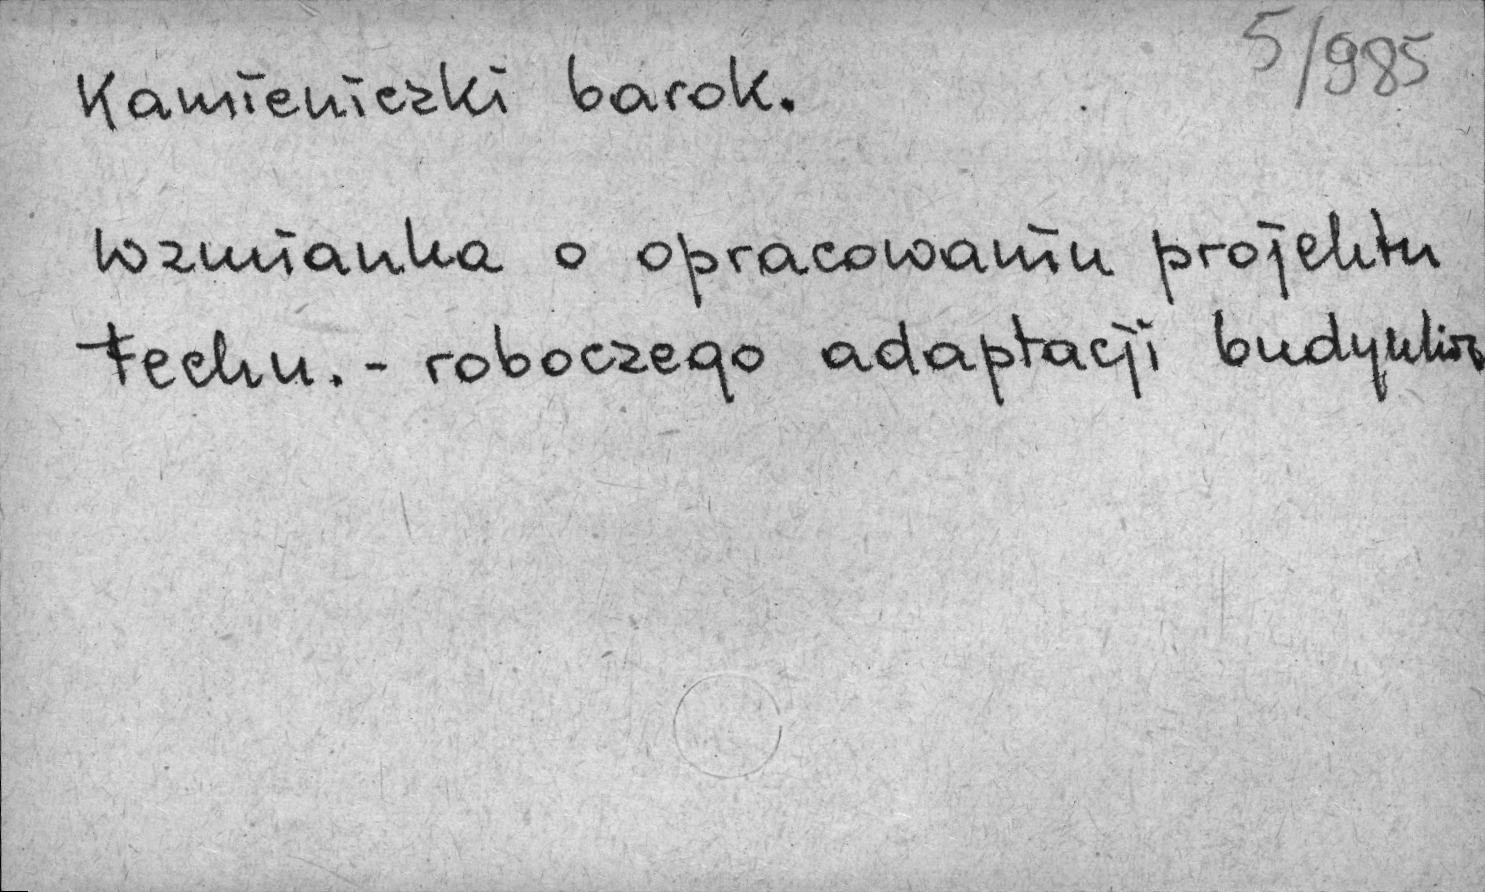 5/985
Kamieniczki barok.
Wzmianka o opracowaniu projektu
techn. - roboczego adaptacji budynków